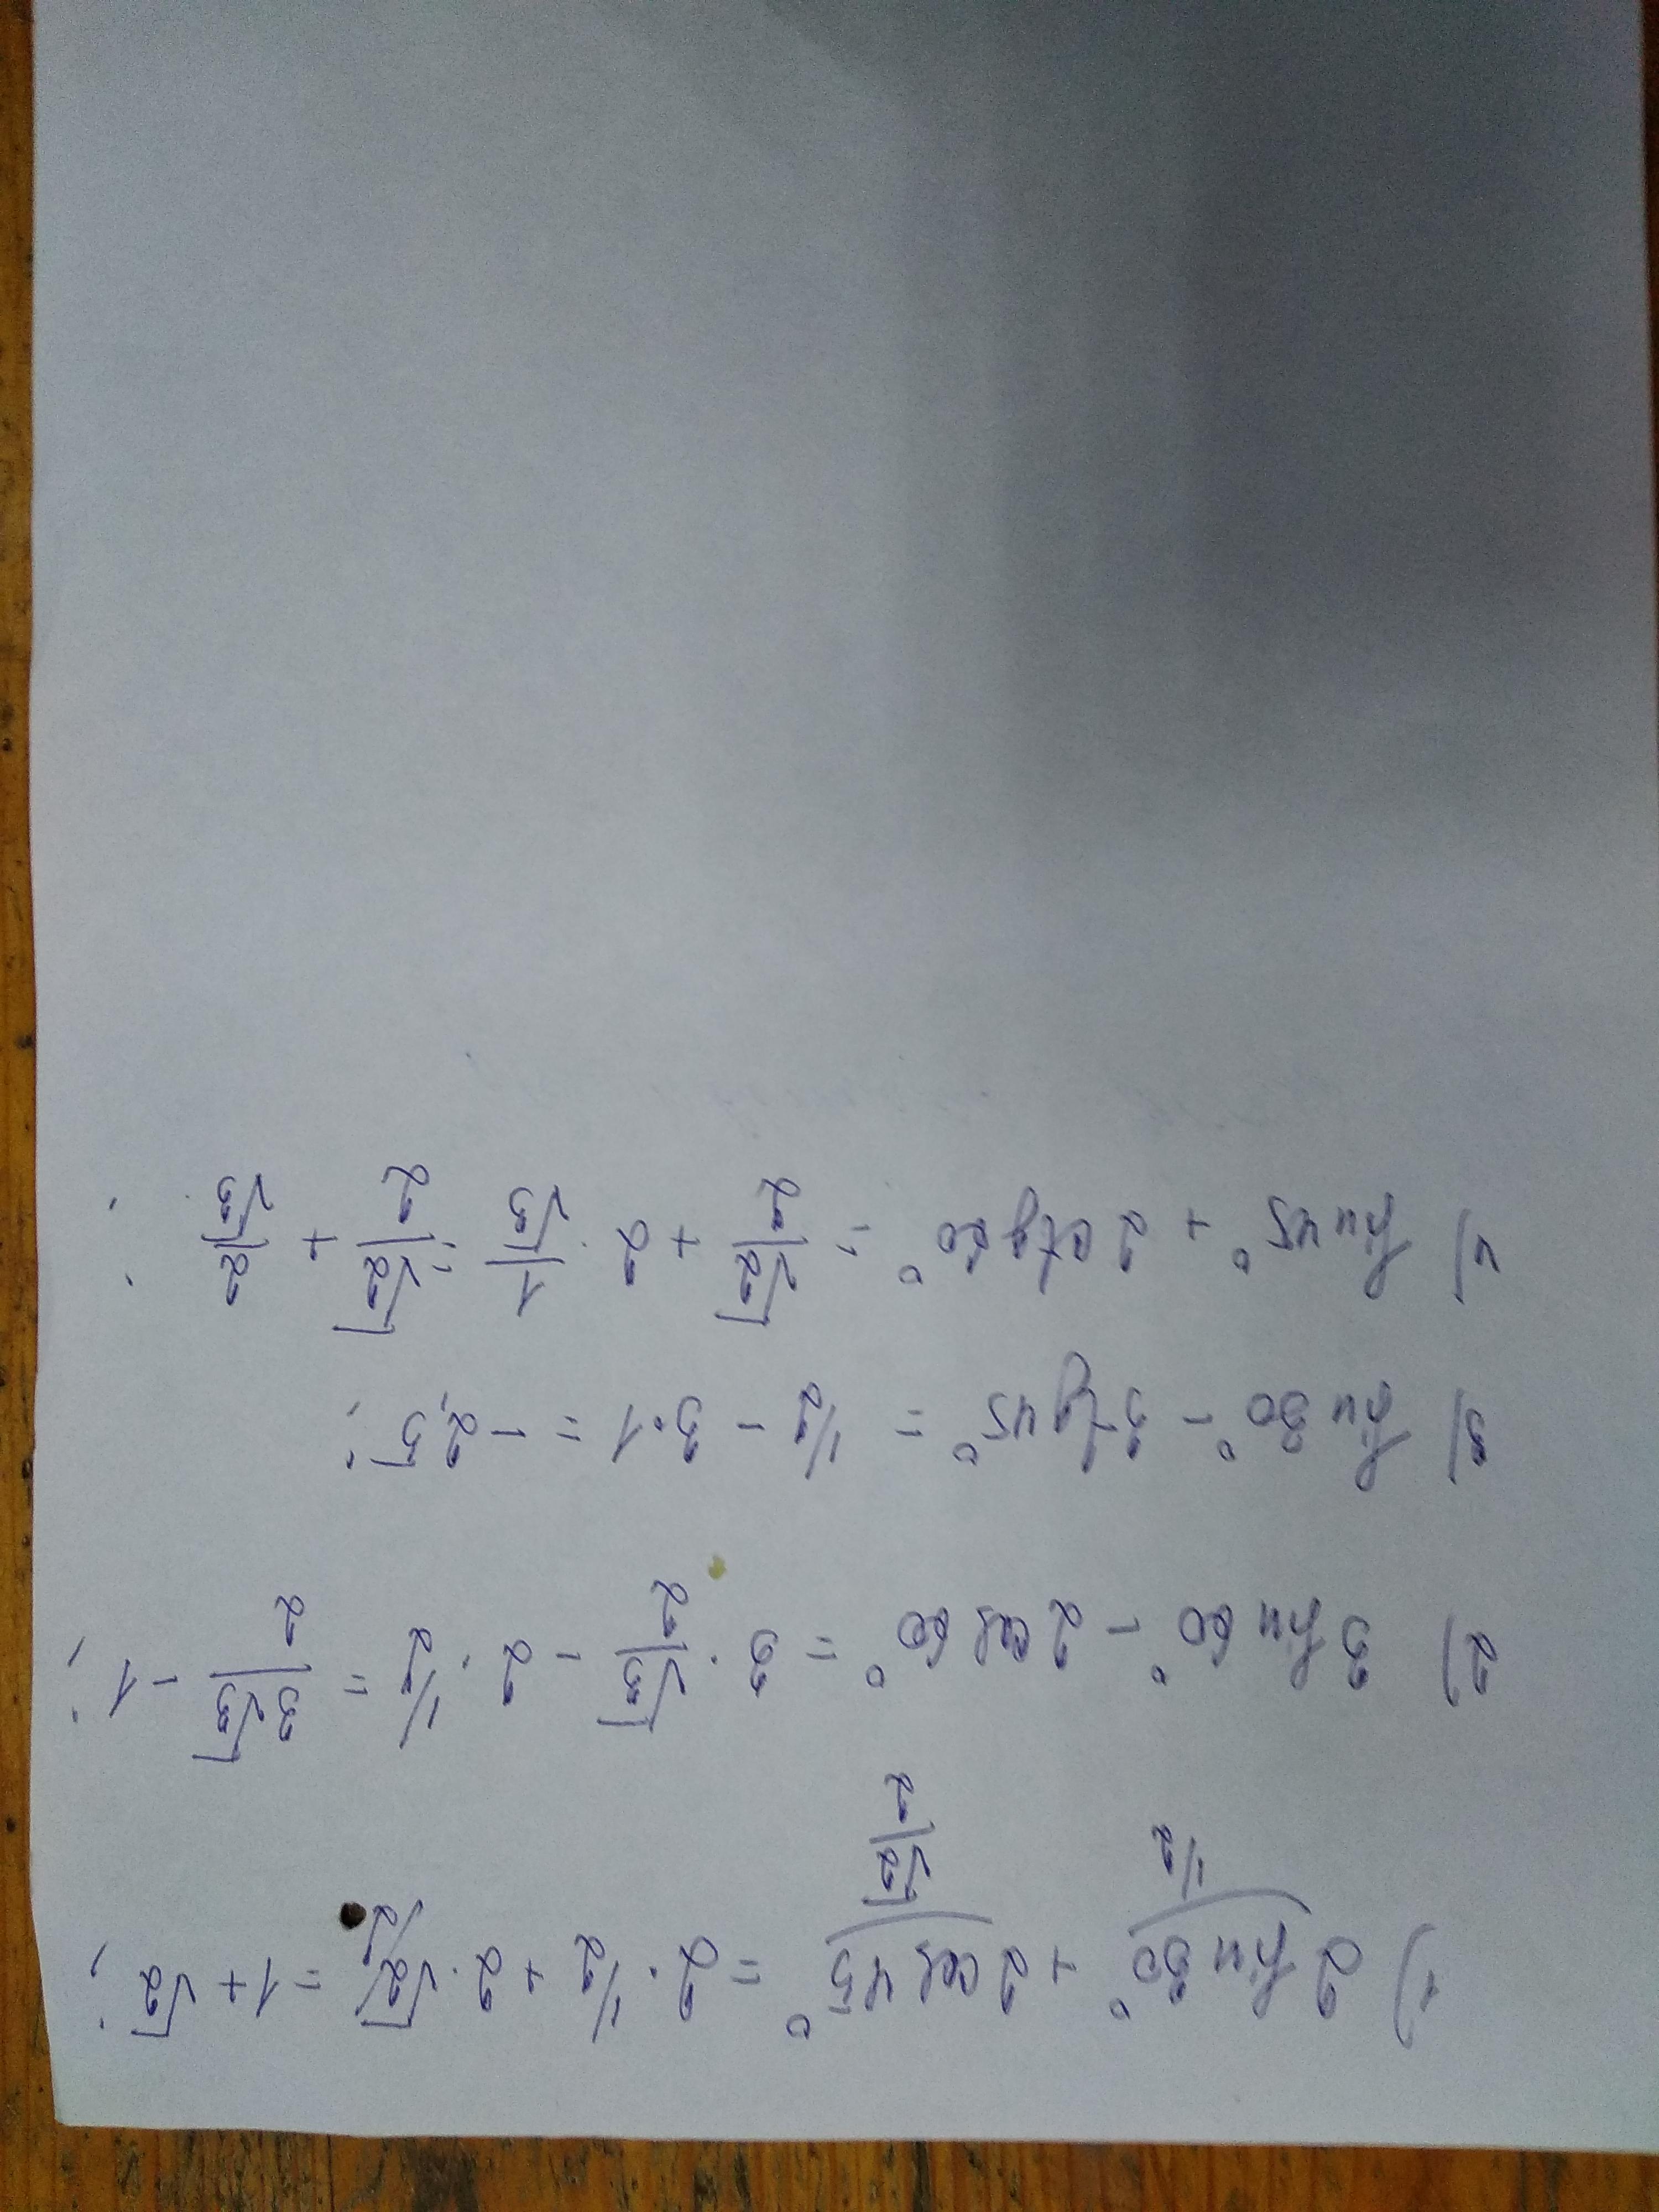 1) 2 sin 30° + 2 cos 45° = 2 · 1/2 + 2 · √2/2 = 1 + √2;
1/2 √2/2
2) 3 sin 60° - 2 cos 60° = 3 · √3/2 - 2 · 1/2 = 3√3/2 - 1;
3) sin 30° - 3 tg 45° = 1/2 - 3·1 = -2,5;
4) sin 45° + 2 ctg 60° = √2/2 + 2 · 1/√3 = √2/2 + 2/√3;